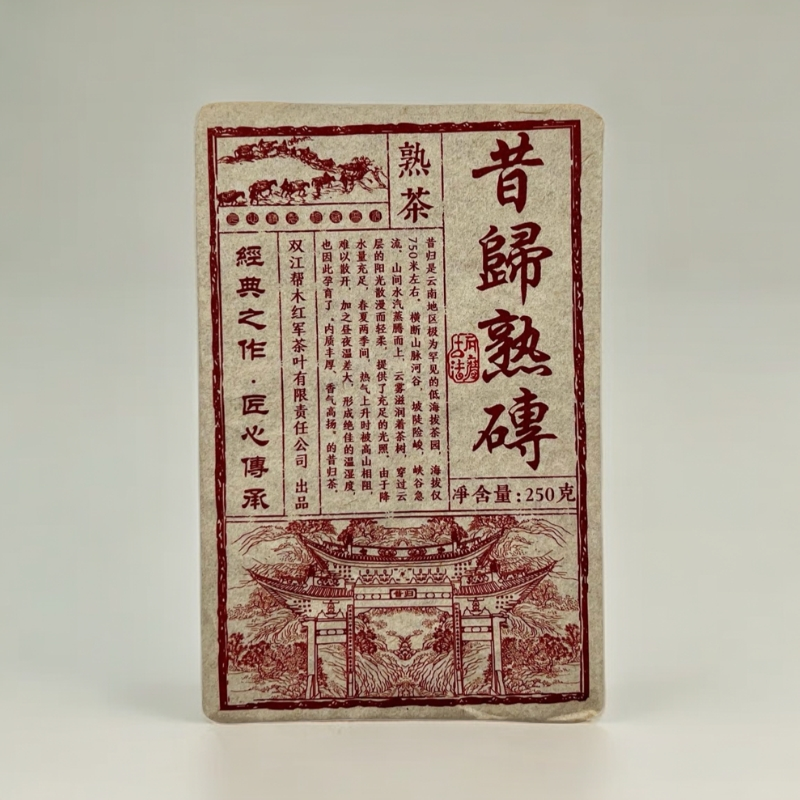 昔歸熟磚
古法
净含量:250克
熟茶
昔归是云南地区极为罕见的低海拔茶园，海拔仅
750米左右，横断山脉河谷，坡陡险峻，峡谷急
流，山间水汽蒸腾而上，云雾滋润着茶树，穿过云
层的阳光散漫而轻柔，提供了充足的光照，由于降
水量充足，春夏两季间，热气上升时被高山相阻，
难以散开，加之昼夜温差大，形成绝佳的温湿度，
也因此孕育了，内质丰厚、香气高扬。的昔归茶。
双江帮木红军茶叶有限责任公司 出品
經典之作·匠心傳承
昔归